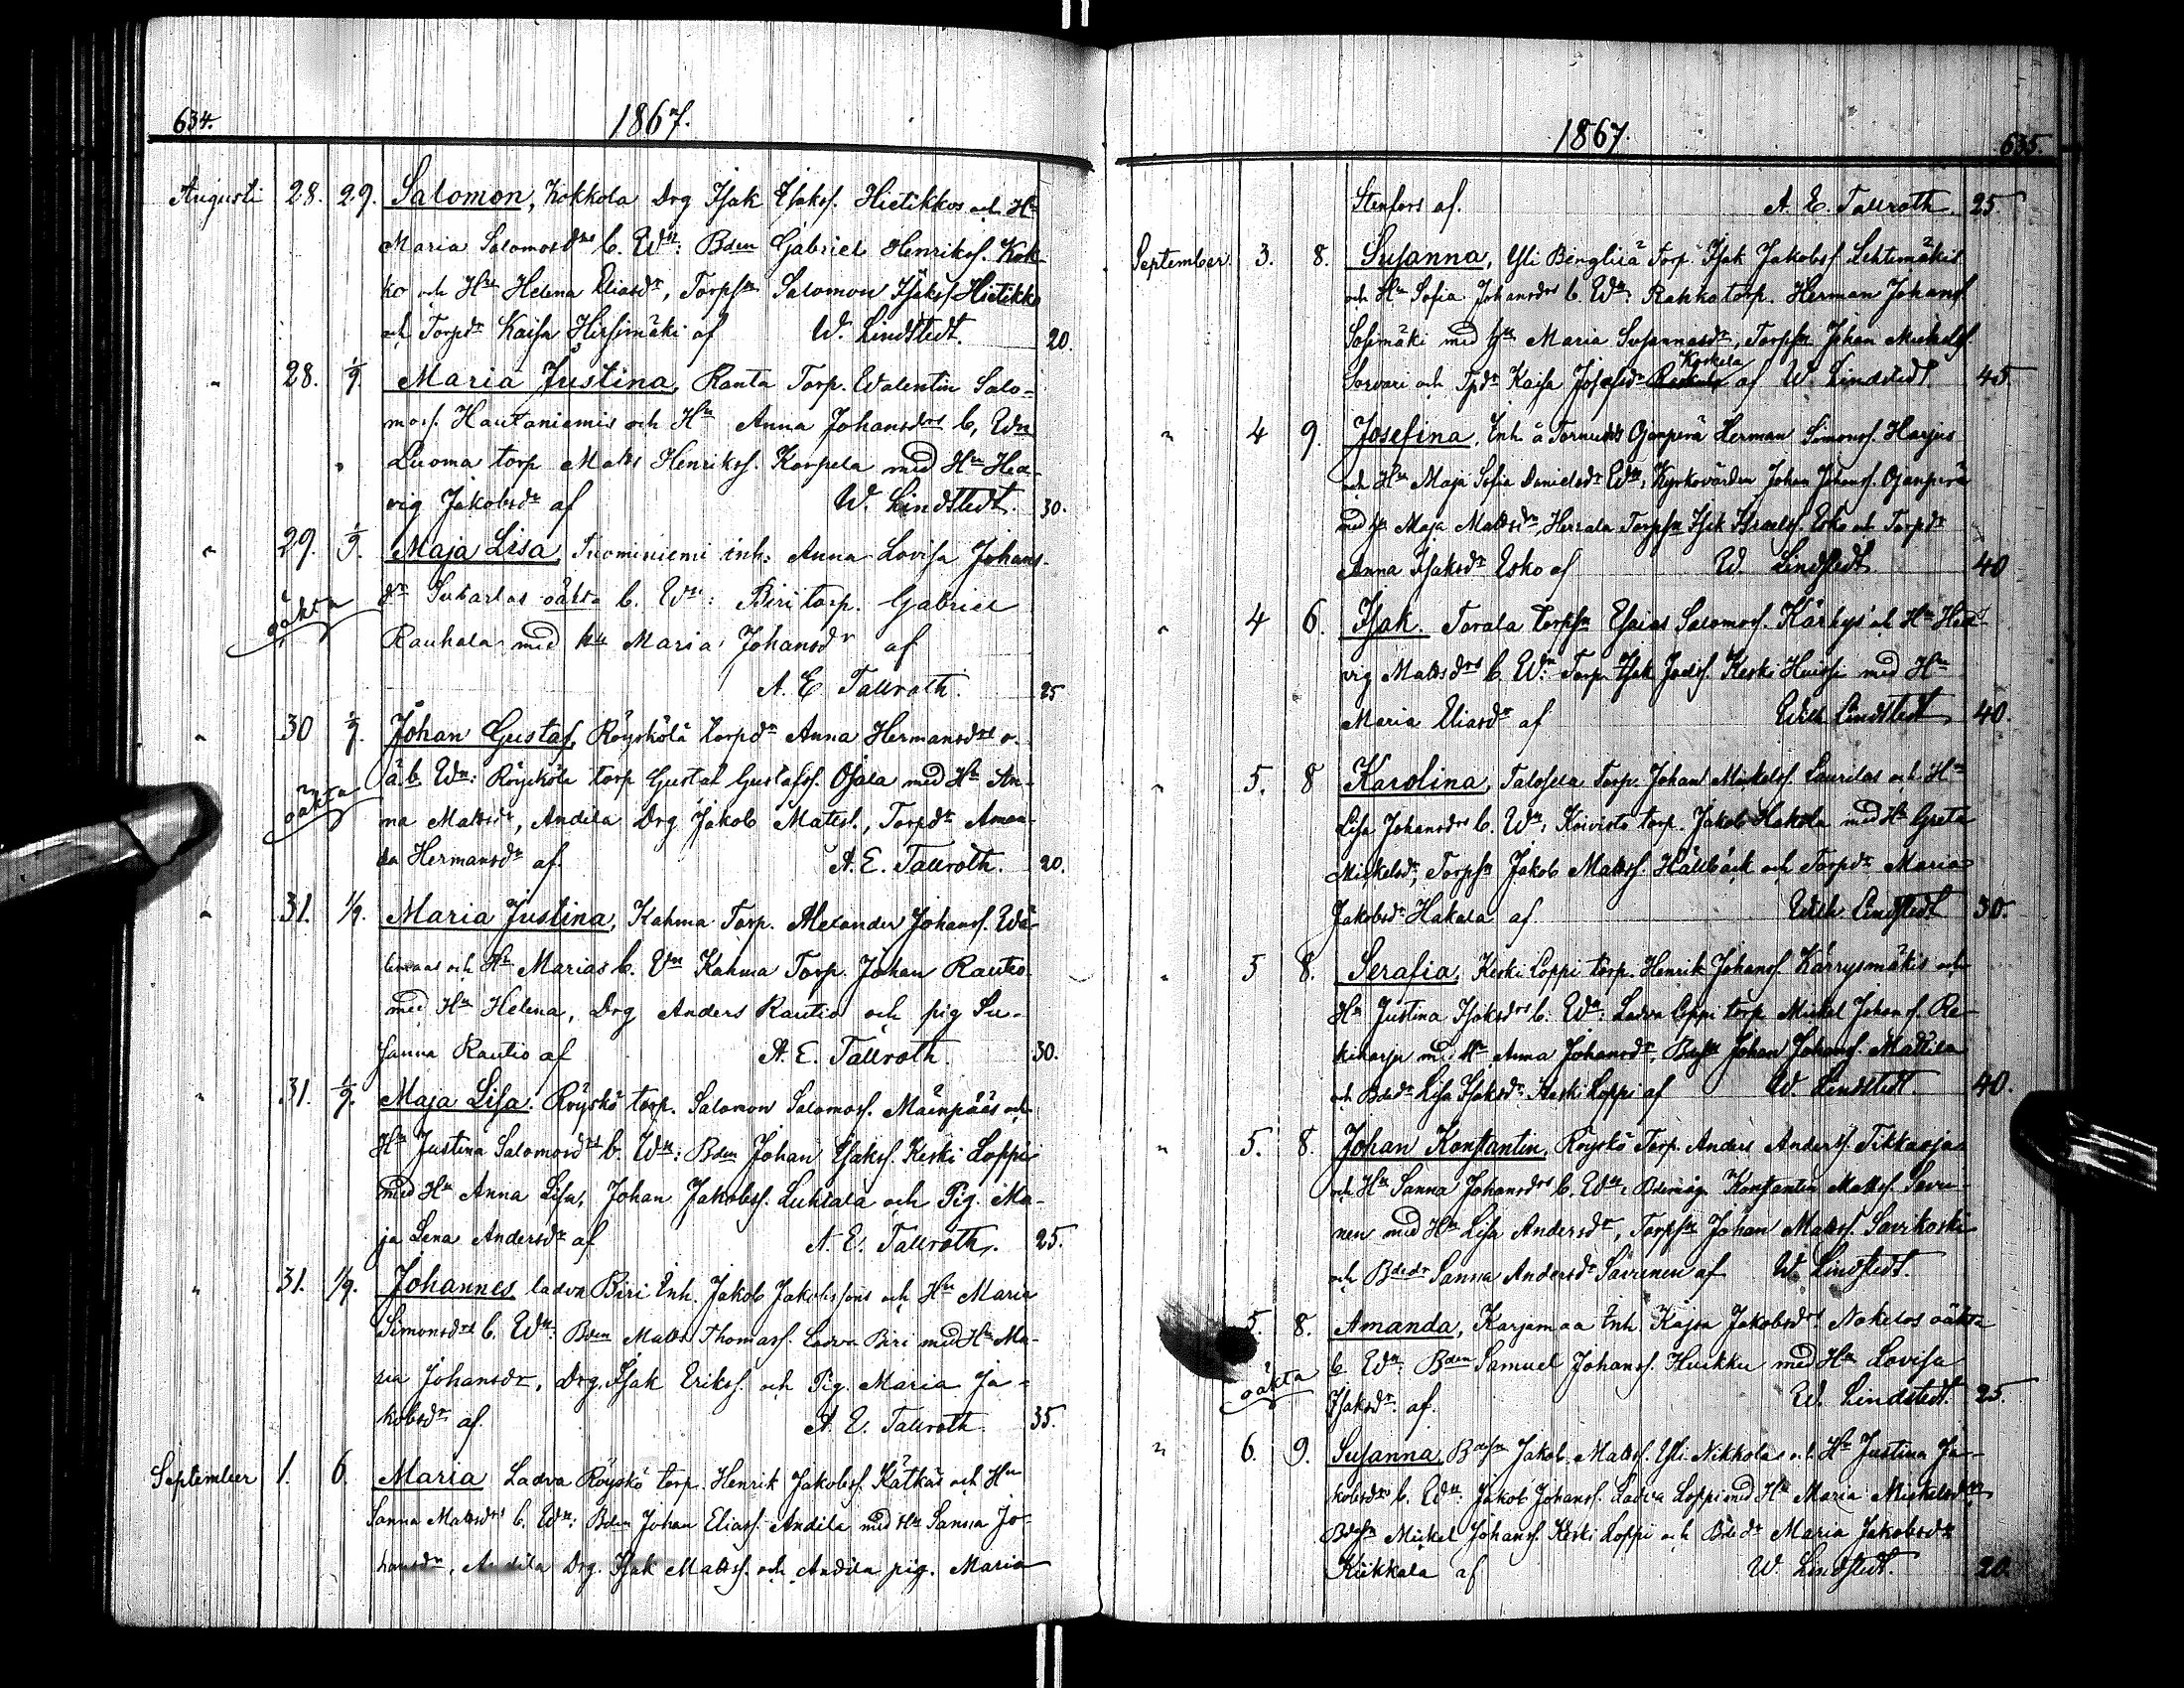 634.
1867.
Augusti 28. 29. Salomon, Kokkola Drg Isak Esaks. Hietikkos och Hu
Maria Salomosdrs b. Wn: Bden Gabriel Henrikss. Kok-
ko och Hu Helena Eliasdr, Torpsn Salomon Isakss Hietikko
och Torpdr Kaisa Hirsimäki af W. Lindstedt. 20.
" 28. 1/9. Maria Justina, Ranta Torp. Walentin Salo-
mons. Hautaniemis och Hu Anna Johansdrs b, Wn
Luoma torp Matts Henrikss. Korpela med Hu Hed-
vig Jakobsdr af W. Lindstedt. 30.
" 29. 1/9. Maja Lisa Tuominiemi inh: Anna Lovisa Johans-
oäkta
dr oäkta b. Wn: Biri torp. Gabriel
Rauhala med hu Maria Johansdr af
A. E. Tallroth. 25
" 30 1/9. Johan Gustaf, Röyskölä torpdr Anna Hermansdrs o-
oäkta
ä. b. Wn: Röyskölä torp Gustaf Gustafss. Ojala med Hu An-
na Mattsdr, Andila Drg Jakob Matts., Torpdr Aman-
da Hermansdr af A. E. Tallroth. 20.
" 31. 1/9. Maria Justina, Kahma Torp. Alexander Johanss. Wä-
och Hu Marias b. Wn Kahma Torp. Johan Rautio
med Hu Helena, Drg Anders Rautio och pig Su-
sanna Rautio af A. E. Tallroth. 30.
" 31. 1/9. Maja Lisa. Röyskö torp. Salomon Salomons. Mäenpääs och
Hu Justina Salomonsdrs b. Wn: Bden Johan Esakss. Keski Loppi
med Hu Anna Lisa, Johan Jakobss. Luhtala och Pig. Ma-
ja Lena Andersdr af A. E. Tallroth. 25.
" 31. 1/9. Johannes ladva Biri Inh. Jakob Jakobssons och Hu Maria
Simonsdrs b. Wn: Bden Matts Thomass. Ladva Biri med Hu Ma-
ria Johansdr, Drg. Isak Erikss. och Pig. Maria Ja-
kobsdr af. A. E. Tallroth 35.
September 1. 6. Maria Ladva Röyskö torp. Henrik Jakobss. Kätkäs och Hu
Sanna Mattsdrs b. Wn: Bden Johan Eliass. Andila med Hu Sanna Jo-
hansdr, Andila Drg. Isak Matts. och Andila pig. Maria
1867.
635.
Stenfors af. A. E. Tallroth. 25
September 3. 8. Susanna, Yli Torp. Isak Jakobss Lehtimäkis
och Hu Sofia Johansdrs b. Wn: Rahkatorp. Herman Johans
med Hu Maria Susannasdr, Torpsn Johan Mickelss.
Koskela
Sorvari och Tpdr Kaisa Josefsdr af W. Lindstedt 45.
" 4 9. Josefina, Inh. å Tornudds Ojanperä Herman Simonss. Harjus
och Hu Maja Sofia Danielsdr Wn: Kyrkovärden Johan Johanss. Ojanperä
med Hu Maja Mattsdr, Herrala Torpsn Isak Israelss. Esko och Torpdr
Anna Isaksdr Esko af W. Lindstedt 40
" 4 6. Isak. Torala torpsn Esaias Salomons. Kärkys och Hu Hed-
vig Mattsdrs b. Wn: Torp. Isak Jacks. Keski Huissi med Hu
Maria Eliasdr af Wilh Lindstedt 40.
" 5. 8 Karolina, Talosela Torp. Johan Mickelss. Laurilas och Hu
Lisa Johansdrs b. Wn: Koivisto torp. Jakob Hakola med Hu Greta
Mickelsdr, Torpsn Jakob Matts. Hällbäck och Torpdr Maria
Jakobsdr Hakala af Wilh Lindstedt 30.
" 5 8. Serafia, Keski Loppi torp. Henrik Johanss. Karrysmäkis och
Hu Justina Isaksdrs b. Wn: Ladva Loppi torp Mickel Johanss. Re-
kiharju med Hu Anna Johansdr, Bdsn Johan Johanss. Mattila
och Bdedr Lisa Isaksdr Keski Loppi af W. Lindstedt. 40.
" 5. 8. Johan Konstantin, Röyskö Torp. Anders Anderss. Tikkaoja
och Hu Sanna Johansdrs b. Wn: Bdemåg Konstantin Matts. Savu-
nen med Hu Lisa Andersdr, Torpsn Johan Matts. Savikoski
och Bdedr Sanna Andersdr Savunen af W. Lindstedt.
5. 8. Amanda, Karjamaa Inh. Kajsa Jakobsdrs Nokelas oäkta
oäkta
b. Wn: Bden Samuel Johanss. Huikku med Hu Lovisa
Isaksdr. af. W. Lindstedt. 25.
" 6. 9. Susanna Bdesn Jakob Matts. Yli Nikkolas och Hu Justina Ja-
kobsdrs b. Wn: Jakob Johanss. Ladva Loppi med Hu Maria Mickelsdr
Bdesn Mickel Johanss. Keski Loppi och Bdedr Maria Jakobsdr
Kiikkala af W. Lindstedt. 20.